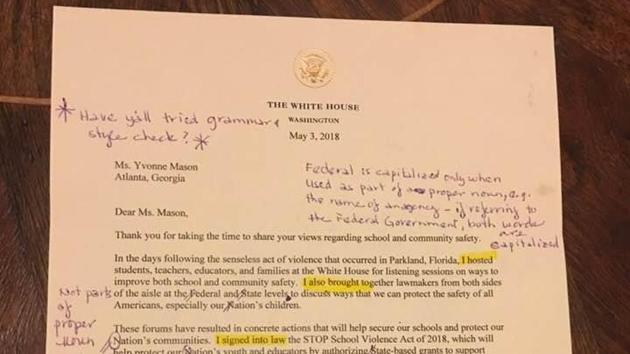 THE WHITE HOUSE
WASHINGTON
May 3, 2018
* Have y'all tried grammar &
style check? *
Ms. Yvonne Mason
Atlanta, Georgia
Federal is capitalized only when
used as part of a proper noun, e.g.
the name of an agency - if referring to
the Federal Government, both words
are
capitalized
Dear Ms. Mason,
Thank you for taking the time to share your views regarding school and community safety.
In the days following the senseless act of violence that occurred in Parkland, Florida, I hosted
students, teachers, educators, and families at the White House for listening sessions on ways to
improve both school and community safety. I also brought together lawmakers from both sides
of the aisle at the Federal and State levels to discuss ways that we can protect the safety of all
Americans, especially our Nation's children.
Not parts
of
proper
noun
These forums have resulted in concrete actions that will help secure our schools and protect our
Nation's communities. I signed into law the STOP School Violence Act of 2018, which will
help protect our Nation's youth and educators by authorizing State-based grants to support